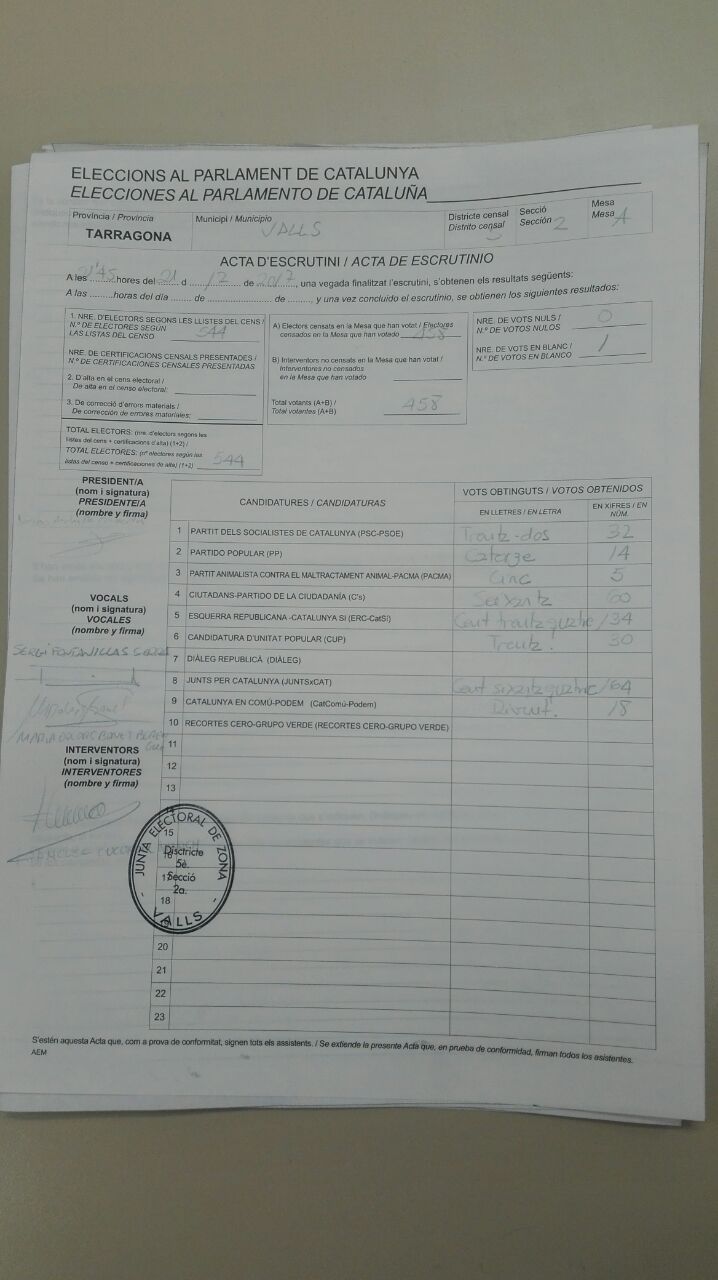 ELECCIONS AL PARLAMENT DE CATALUNYA
ELECCIONES AL PARLAMENTO DE CATALUÑA
Província / Provincia
TARRAGONA
Municipi / Municipio
VALLS
Districte censal
Distrito censal
5
Secció
Sección 2
Mesa
Mesa A
ACTA D'ESCRUTINI / ACTA DE ESCRUTINIO
A les 21'45 hores del 21 d 12 de 2017, una vegada finalitzat l'escrutini, s'obtenen els resultats següents:
A las .........horas del día ....... de ................ de ........, y una vez concluido el escrutinio, se obtienen los siguientes resultados:
1. NRE. D'ELECTORS SEGONS LES LLISTES DEL CENS /
N.º DE ELECTORES SEGÚN
LAS LISTAS DEL CENSO 544
NRE. DE CERTIFICACIONS CENSALS PRESENTADES /
N.º DE CERTIFICACIONES CENSALES PRESENTADAS
2. D'alta en el cens electoral /
De alta en el censo electoral:
3. De correcció d'errors materials /
De corrección de errores materiales:
TOTAL ELECTORS: (nre. d'electors segons les
llistes del cens + certificacions d'alta) (1+2) /
TOTAL ELECTORES: (nº electores según las
listas del censo + certificaciones de alta) (1+2) 544
A) Electors censats en la Mesa que han votat / Electores
censados en la Mesa que han votado 458
B) Interventors no censats en la Mesa que han votat /
Interventores no censados
en la Mesa que han votado
Total votants (A+B) /
Total votantes (A+B) 458
NRE. DE VOTS NULS /
N.º DE VOTOS NULOS 0
NRE. DE VOTS EN BLANC /
N.º DE VOTOS EN BLANCO 1
PRESIDENT/A
(nom i signatura)
PRESIDENTE/A
(nombre y firma)
VOCALS
(nom i signatura)
VOCALES
(nombre y firma)
SERGI FONTANILLAS
INTERVENTORS
(nom i signatura)
INTERVENTORES
(nombre y firma)
CANDIDATURES / CANDIDATURAS
VOTS OBTINGUTS / VOTOS OBTENIDOS
EN LLETRES / EN LETRA
EN XIFRES / EN NÚM.
1 PARTIT DELS SOCIALISTES DE CATALUNYA (PSC-PSOE) Trenta-dos 32
2 PARTIDO POPULAR (PP) Catorze 14
3 PARTIT ANIMALISTA CONTRA EL MALTRACTAMENT ANIMAL-PACMA (PACMA) Cinc 5
4 CIUTADANS-PARTIDO DE LA CIUDADANÍA (C's) Seixanta 60
5 ESQUERRA REPUBLICANA -CATALUNYA SÍ (ERC-CatSí) Cent trenta quatre 134
6 CANDIDATURA D'UNITAT POPULAR (CUP) Trenta. 30
7 DIÀLEG REPUBLICÀ (DIÀLEG)
8 JUNTS PER CATALUNYA (JUNTSxCAT) Cent sixanta quatre 164
9 CATALUNYA EN COMÚ-PODEM (CatComú-Podem) Divuit. 18
10 RECORTES CERO-GRUPO VERDE (RECORTES CERO-GRUPO VERDE)
11
12
13
14
15
16
17
18
19
20
21
22
23
JUNTA ELECTORAL DE ZONA
Districte
5è.
Secció
2a.
- VALLS -
S'estén aquesta Acta que, com a prova de conformitat, signen tots els assistents. / Se extiende la presente Acta que, en prueba de conformidad, firman todos los asistentes.
AEM